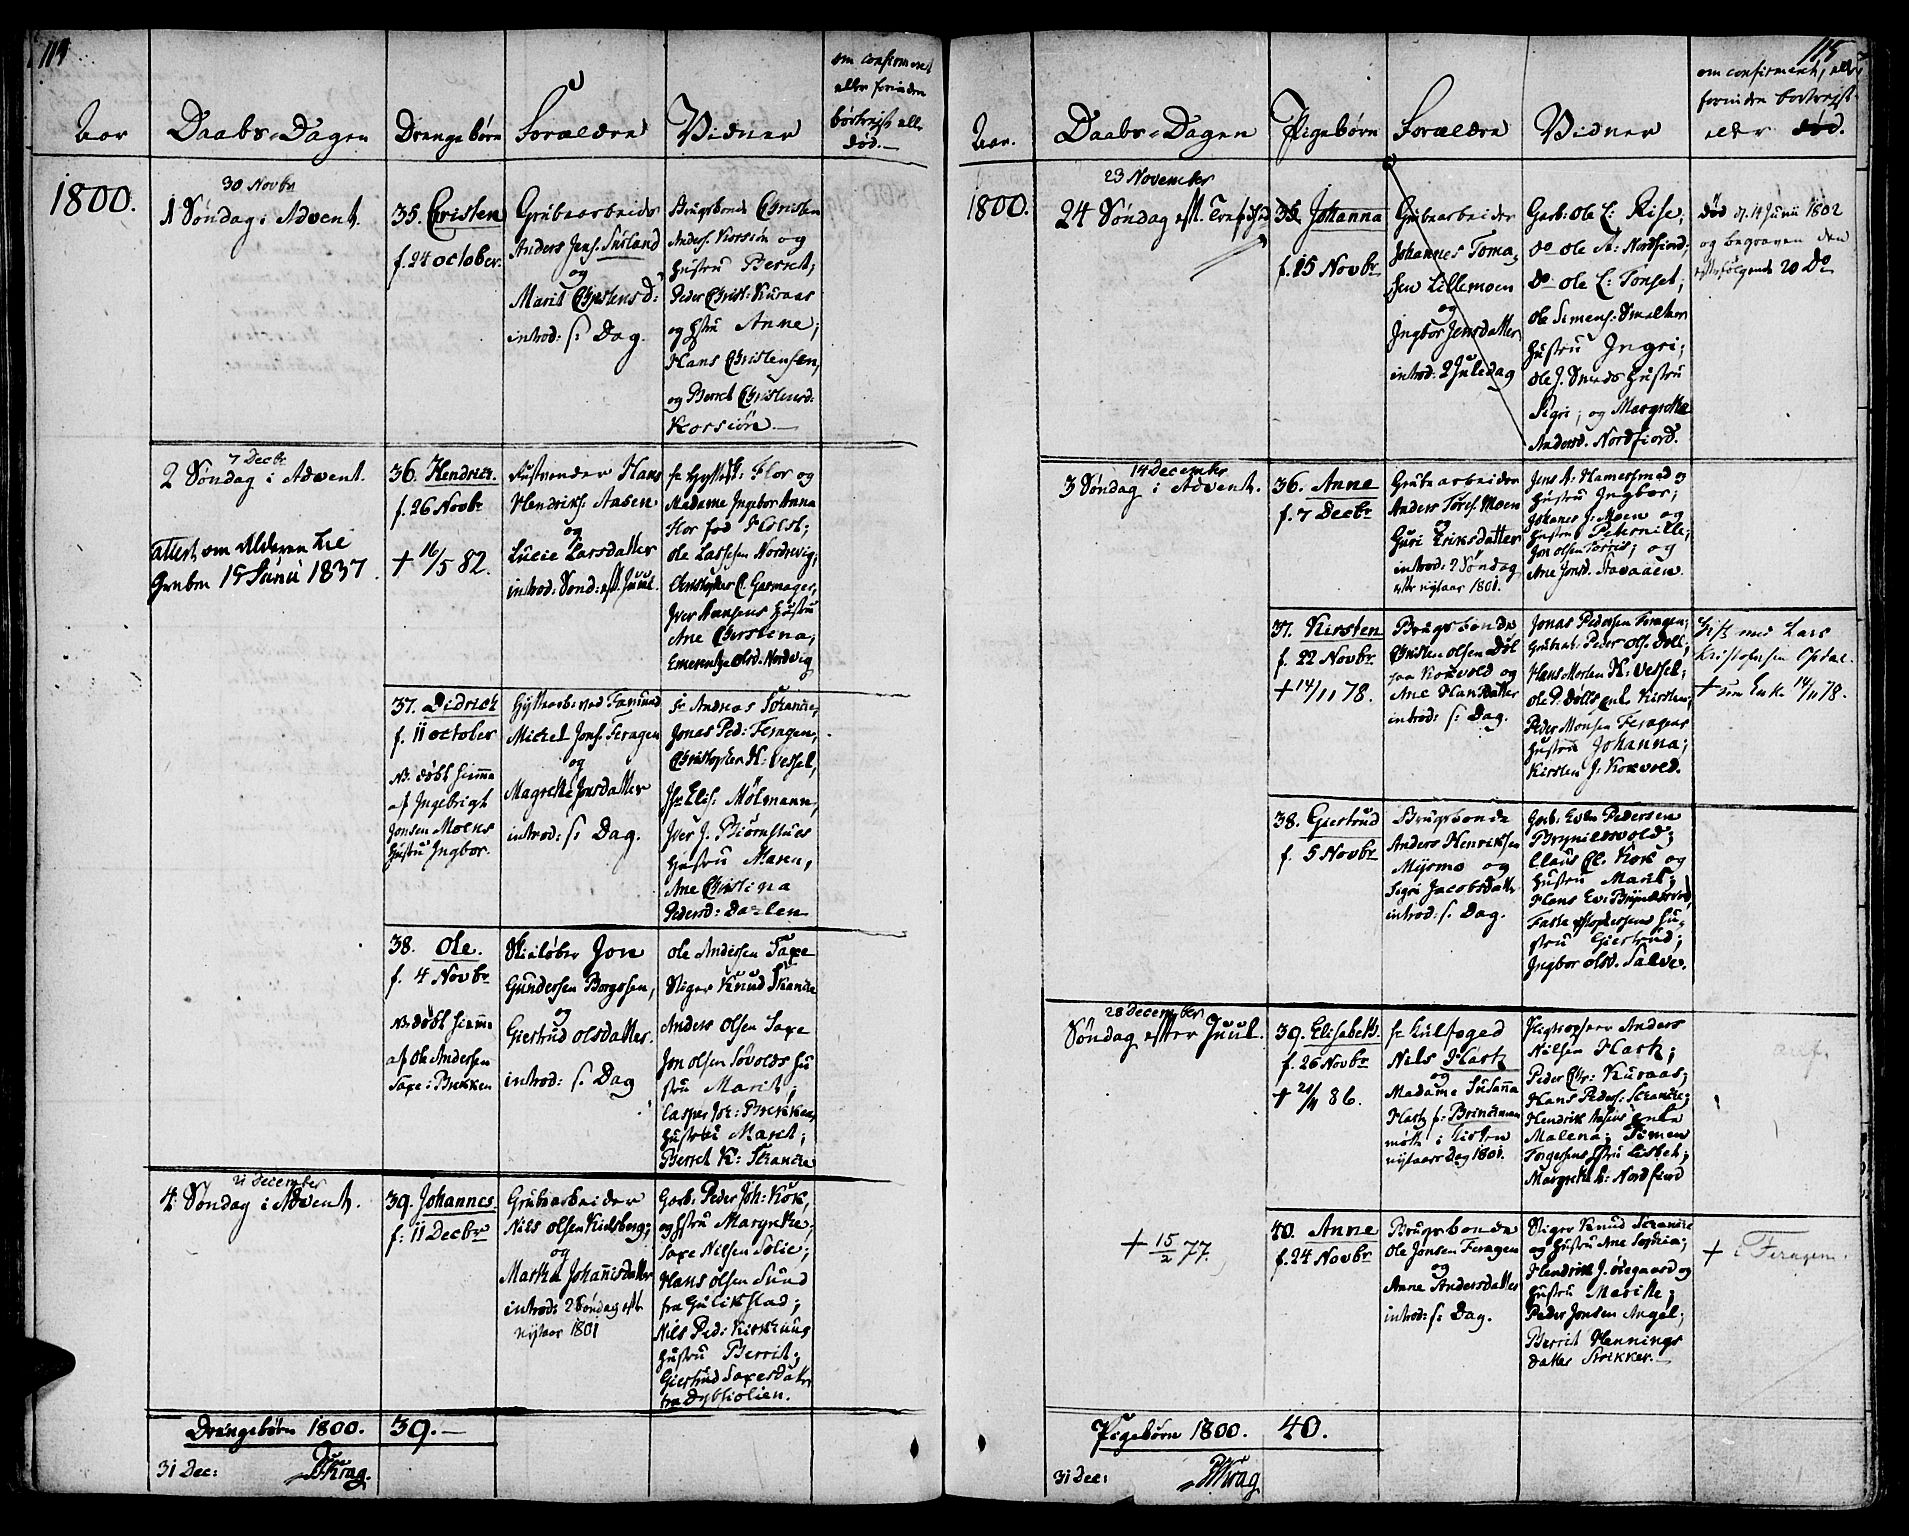 114
Aar
Daabs-Dagen
Drengebørn
Forældre
Vidner
om confirmeret
eller forinden
bortrejst eller
død.—
1800.
30 Novbr
1 Søndag i Advent.
35. Christen
f. 24 october.
Grubearbeider
Anders Jens.
og
Marit Christensd:
introd: s: Dag.
Brugsbonde Christen
Anders. Korsiøn og
Hustru Berret;
Peder Christ: Kuraas
og Hstru Anne;
Hans Christensen,
og Berret Christensd:
Korsiøn.—
7 Decbr
2 Søndag i Advent.
Attest om Alderen
15 Junii 1837.
36. Hendrich.
f. 26 Novbr
+ 16/5 82.
Hans
Hendriks: Aasen
og
Lucie Larsdatter
introd: Sønd: eft. Juul.
Flor og
Madame Ingebor Anna
Flor fød Holst;
Ole Larssen Nordvig;
Garmager,
Iver Hansens Hustru
Ane Christina,
Emerentze Olsd: Nordvig
37. Didrich
f. 11 october
NB. døbt hiemme
af Ingebrigt
Jonsen Moens
Hustru Ingbor.
Hyttearb: ved Fæmund
Michel Jons. Feragen
og
Magrethe Jonsdatter
introd: s: Dag.
Sr Andreas Schancke,
Jonas Ped: Feragen,
Christopher H: Vessel,
Elis: Mølmann,
Iver J. Biørnstues
Hustru Maren,
Ane Christina
Pedersd: Dahlen
38. Ole.
f. 4 Novbr
NB døbt hiemme
af Ole Andersen
Saxe i Brekken
Skieløber Jon
Gundersen Borgosen,
og
Giertrud Olsdatter.
introd: s. Dag
Ole Andersen Saxe
Stiger Knud Skancke
Anders Olsen Saxe
Jon Olsen Søvolds Hu
stru Marit;
Casper Joh: Brekken,
Hustru Marit;
Berret K: Skancke
21 december
4 Søndag i Advent.
39. Johannes.
f: 11 Decbr
Grubearbeider
Nils Olsen Kulsberg;
og
Martha Johannisdatter
introd: 2 Søndag eft.
Nytaar 1801
Garb: Peder Joh: Kok,
og Hstru Margrethe;
Saxe Nilsen Solie;
Hans Olsen Sund
fra Gulikstad;
Nils Ped: Kirkhaug
Hustru Berrit;
Giertrud Saxesdatter
fra Dybsiolien.
Drengebørn 1800. 39.—
31 Dec: Krag.
115
Aar.
Daabs-Dagen
Pigebørn
Forældre
Vidner
om confirmeret, eller
forinden bortrejst
eller død.
1800.
23 November
24 Søndag eft. Trefoldigh
35 Johanna
f. 15 Novbr
Grubearbeider
Johannes Toma,
sen Lillemoen
og
Ingbor Jensdatter
introd: 2 Juledag
Garb: Ole C: Rise,
do Ole A: Nordfiord;
do Ole E: Tonset;
Ole Simens: Smelter
Hustru Ingri;
Ole J. Smeds Hustru
Sigri, og Margrethe
Andersd. Nordfiord.
død d. 14 Junii 1802
og begraven den
efterfølgende 20 do
14 December
3 Søndag i Advent.
36. Anne
f. 7 Decbr
Grubearbeider
Anders Tores. Moen
og
Guri Eriksdatter
introd: 2 Søndag
efter nytaar 1801.
Jens A: Hamersmed og
Hustru Ingbor;
Johanes J: Moen og
Hustru Peternille;
Jon Olsen Borris; og
Ane Jonsd. Aavaaen.
37. Kirsten
f. 22 Novbr
+ 14/11 78.
Brugsbonde
Christen Olsen Døl
paa Kokvold og
Ane Hansdatter
introd: s: Dag.
Jonas Pedersen Feragen;
Grubeat: Peder Ols. Döll;
Hans Morten H: Vessel;
Ole P. Dølls Enke Kirsten;
Peder Monsen Feragens
Hustrue Johanna;
Kirsten J: Kokvold.
Gift med Lars
Kristofersen Opdal.
+ som Enke 14/11 78.
38. Giertrud
f. 5 Novbr
Brugsbonde
Anders Henriksen
Myrmo og
Sigri Jacobsdatter
introd: s. Dag.
Garb: Even Pedersen
Brynildsvold;
Claus Cl. Kork og
Hustru Marit;
Hans Ev: Brynildsvold,
Hu-
stru Giertrud;
Ingbor Olsd. Salve.
28 december
Søndag efter Juul.
39. Elisabeth.
f. 26 Novbr
+ 21/11 86.
Sr Kulfoged
Nils Hart
og
Madame Susanna
Hart f: Brinchman
møtte i Kirken
nytaars Dag 1801.
Anders
Nilsen Hart;
Peder Chr: Kuraas;
Hans Peders: Schancke;
Hendrik Aasens Enke
Malena; Simen
Torgersens Hstru Lisbet;
Margreth L: Nordfiord
+ 15/2 77.
40. Anne
f. 24 Novbr
Brugsbonde
Ole Jonsen Feragen
og
Anne Andersdatter
introd: s: Dag.
Stiger Knud Schancke
og Hustru Ane Sophia;
Hendrik J. Ødegaard og
Hustru Marithe;
Peder Jonsen Angel;
Berrit Hennings
datter Strikker.—
+ i Feragen.
Pigebørn 1800. 40.
31 Dec: Krag